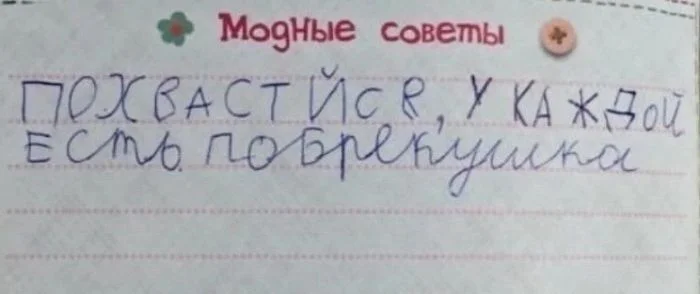 Модные советы
ПОХВАСТЙСЯ, У КАЖДОЙ
ЕСТЬ побрекушка